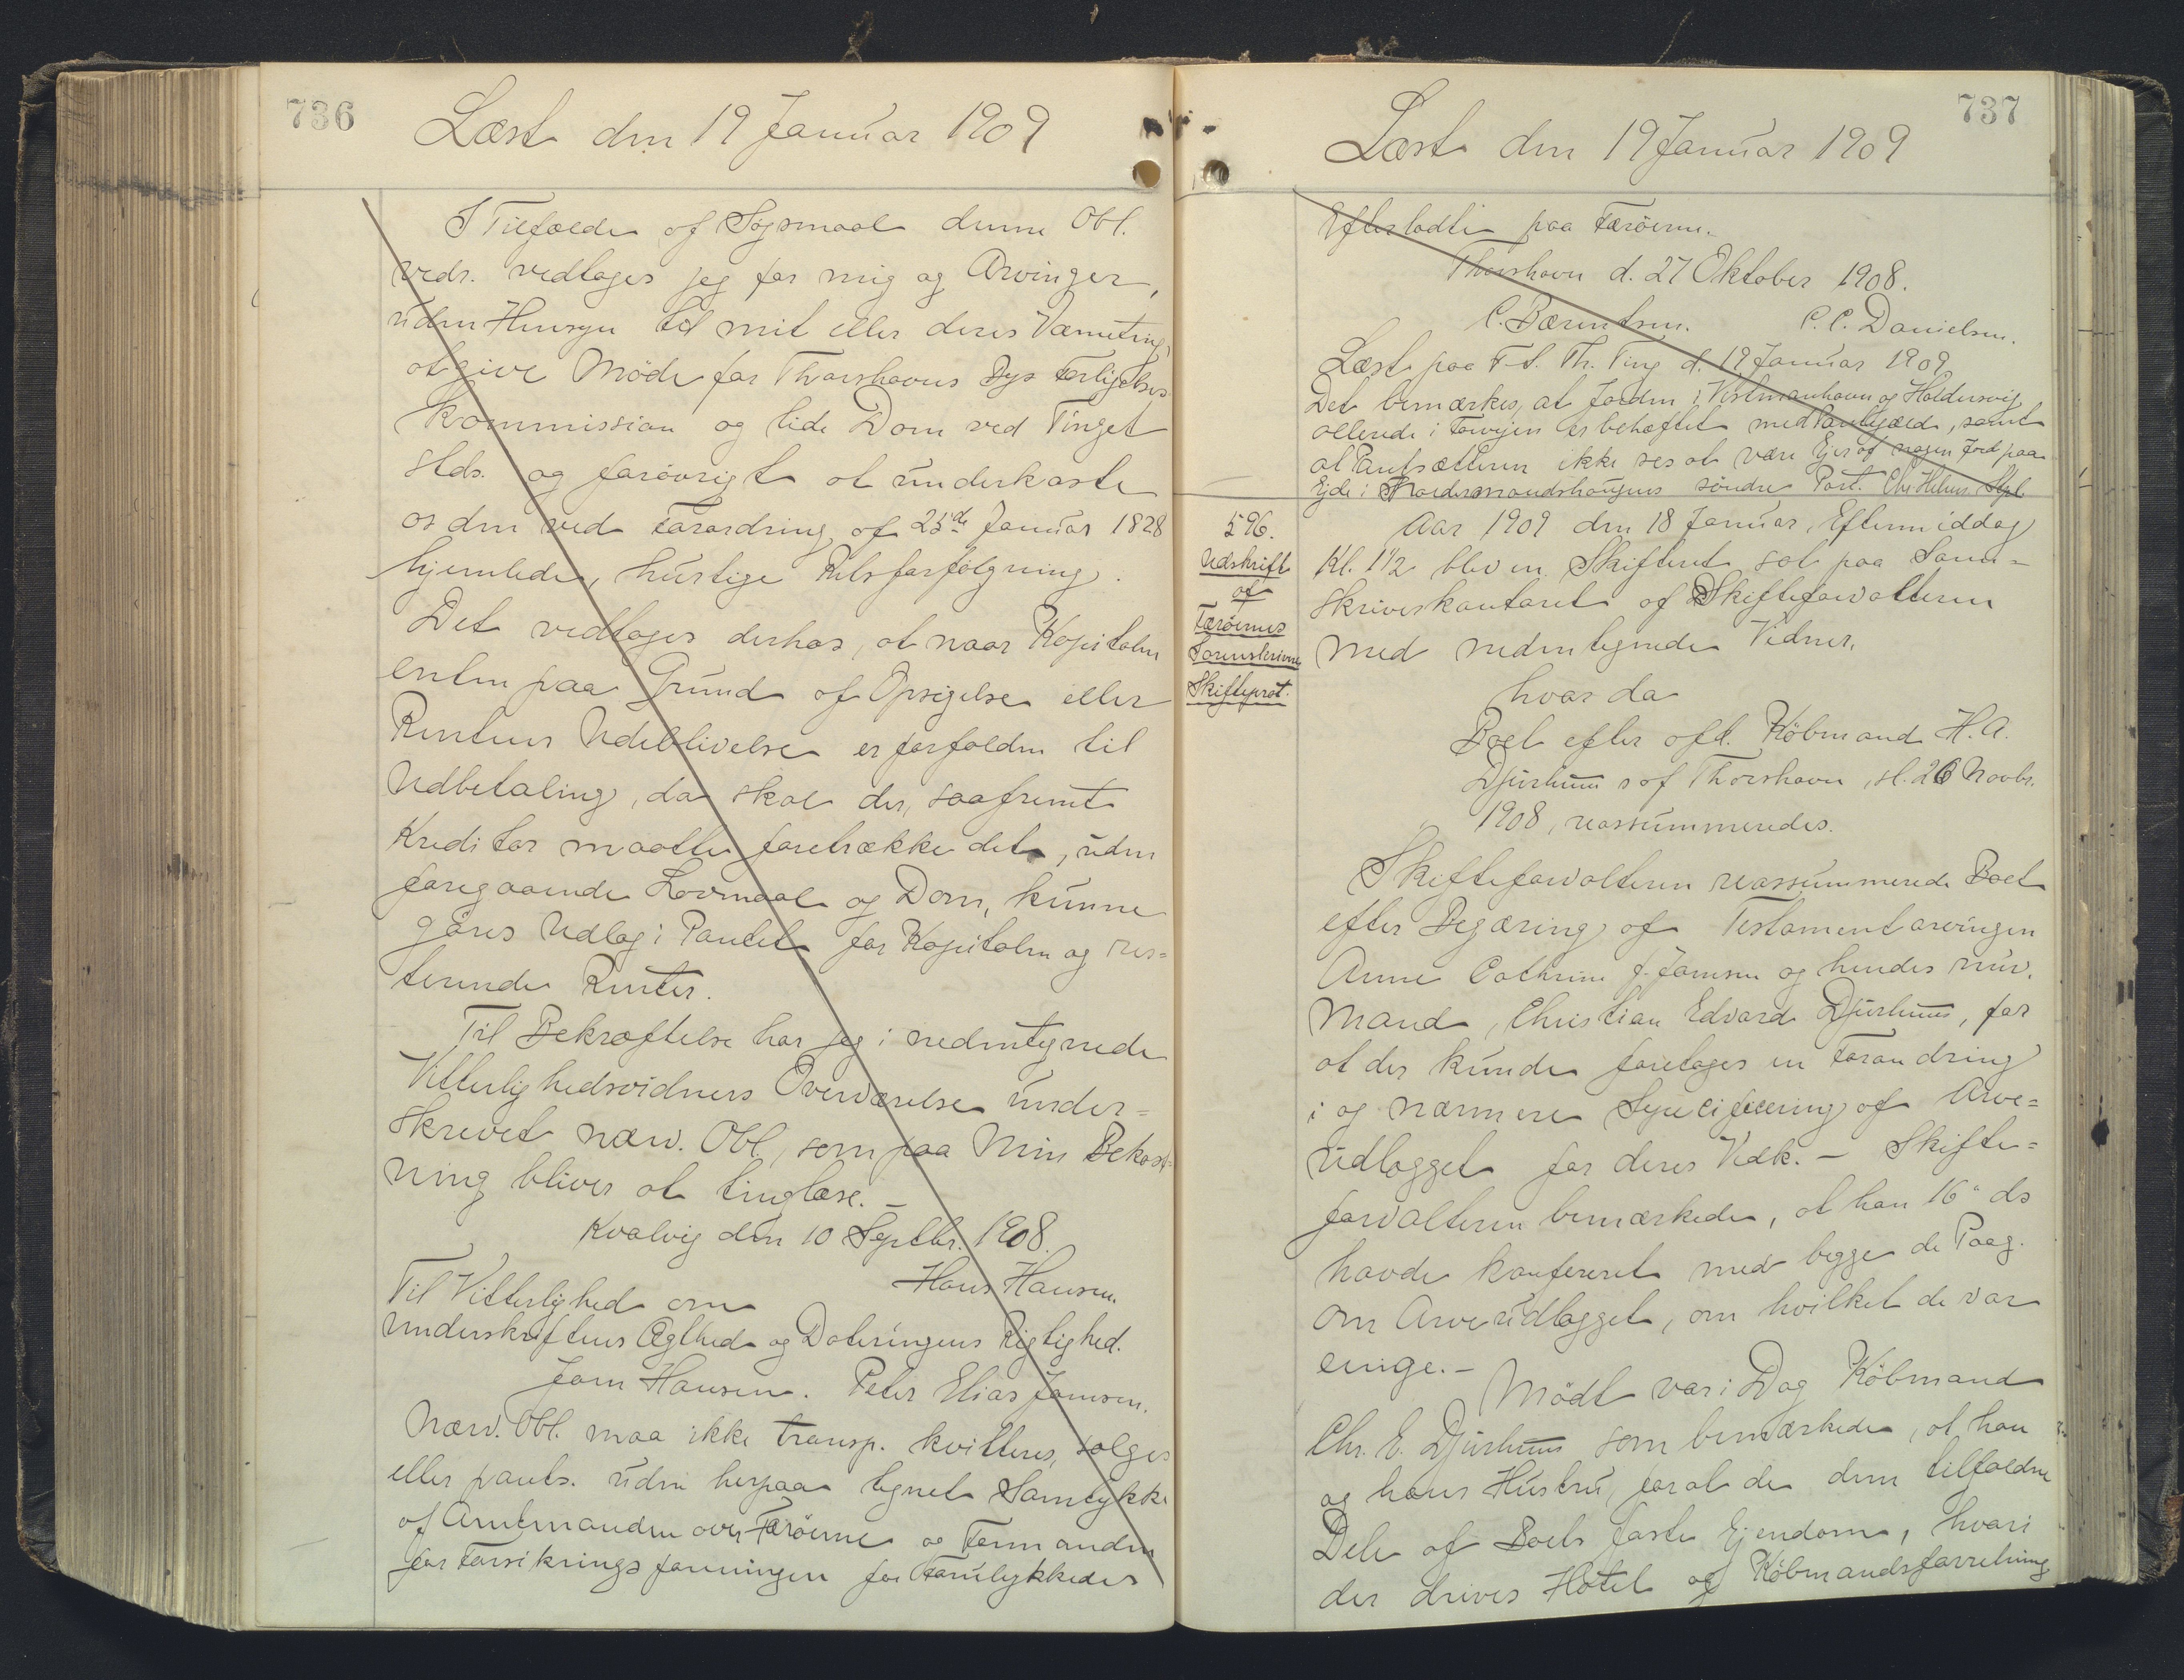 736
Læst den 19 Januar 1909
I Tilfælde af Søgsmaal denne Obl.
vedr. vedtages jeg for mig og Arvinger,
uden Hensyn til mit eller deres Værneting,
at give Möde for Thorshavns Bys Forligelses
kommission og lide Dom ved Tinget
stds. og forövrigt at underkaste
os den ved Forordning af 25de Januar 1828
hjemlede, hurtige Retsforfölgning.
Det vedtages derhos, at naar Kapitalen
enten paa Grund af Opsigelse eller
Rentens Udeblivelse er forfalden til
Udbetaling, da skal der, saafremt
Kreditor maatte foretrække det, uden
foregaaende Lovmaal og Dom, kunne
göres Udlæg i Pantet for Kapitalen og res=
terende Renter.
Til Bekræftelse har jeg i nedentegnede
Vitterlighedsvidners Overværelse under=
skrevet nærv. Obl., som paa min Bekost=
ning bliver at tinglæse. —
Kvalvig den 10 Septbr. 1908.
Hans Hansen.
Til Vitterlighed om
Underskriftens Ægthed og Dateringens Rigtighed.
Joen Hansen. Peter Elias Joensen.
Nærv. Obl. maa ikke transp. kvitteres, sælges
eller pants. uden herpaa tegnet Samtykke
af Amtmanden over Færöerne og Formanden
for Forsikringsforeningen for Forulykkedes
737
Læst den 19 Januar 1909
Efterladte paa Færöerne.
Thorshavn d. 27 Oktober 1908.
C. Bærentsen. P. C. Danielsen.
Læst paa F-S. Th. Ting d. 19 Januar 1909
Det bemærkes, at Jorden i Vestmanhavn og Haldersvig
allerede i Forvejen er behæftet med Pantegæld, samt
at Pantsætteren ikke ses at være Ejer af nogen Jord paa
Ejde i söndre Part.
596.
Udskrift
af
Færöernes
Sorenskriveries
Skifteprot.
Aar 1909 den 18 Januar, Eftermiddag
Kl. 1 1/2 blev en Skifteret sat paa Soren=
skriverkontoret af Skifteforvalteren
med nedentegnede Vidner,
hvor da
Boet efter afd. Köbmand H. A.
Djurhuus af Thorshavn, sl. 26 Novbr.
1908, reassummeredes.
Skifteforvalteren reassummerede Boet
efter Begæring af Testamentarvingen
Anne Cathrine f. Joensen og hendes nuv.
Mand, Christian Edvard Djurhuus, for
at der kunde foretages en Forandring
i og nærmere Specificering af Arve=
udlægget for deres Vedk. — Skifte=
forvalteren bemærkede, at han 16" ds
havde konfereret med begge de Paag.
om Arveudlægget, om hvilket de var
enige. —
Mödt var i Dag Köbmand
Chr. E. Djurhuus som bemærkede, at han
og hans Hustru, for at de dem tilfaldne
Dele af Boets faste Ejendom, hvori
der drives Hotel og Köbmandsforretning